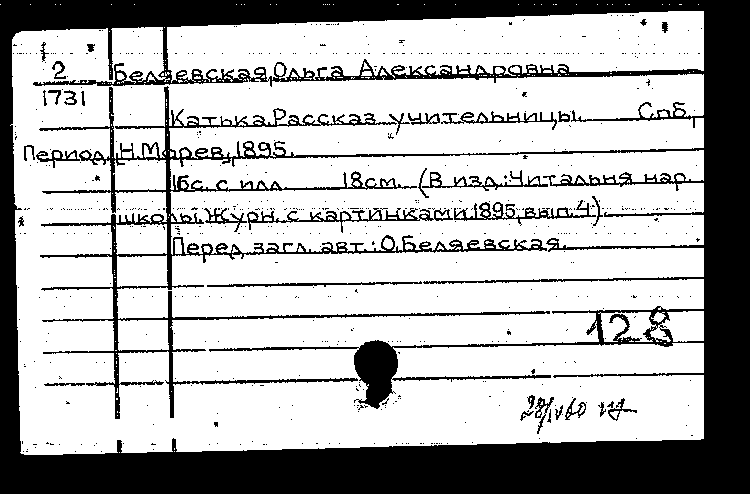 2 Беляевская, Ольга Александровна
1731
Катька. Рассказ учительницы. Спб.,
Период. Н. Морев, 1895.
16с. с илл. 18см. (В изд.: Читальня нар.
школы. Журн. с картинками. 1895, вып. 4).
Перед загл. авт.: О. Беляевская.
128
28/IV 60